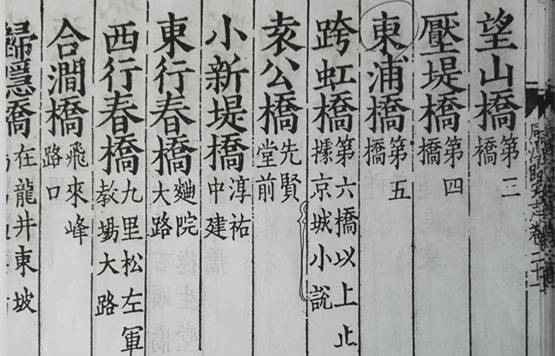 望山橋 第三橋
壓堤橋 第四橋
東浦橋 第五橋
跨虹橋 第六橋以上止據京城小說
袁公橋 先賢堂前
小新堤橋 淳祐中建
東行春橋 麯院大路
西行春橋 九里松左軍教塲大路
合澗橋 飛來峰路口
歸隱橋 在龍井東坡